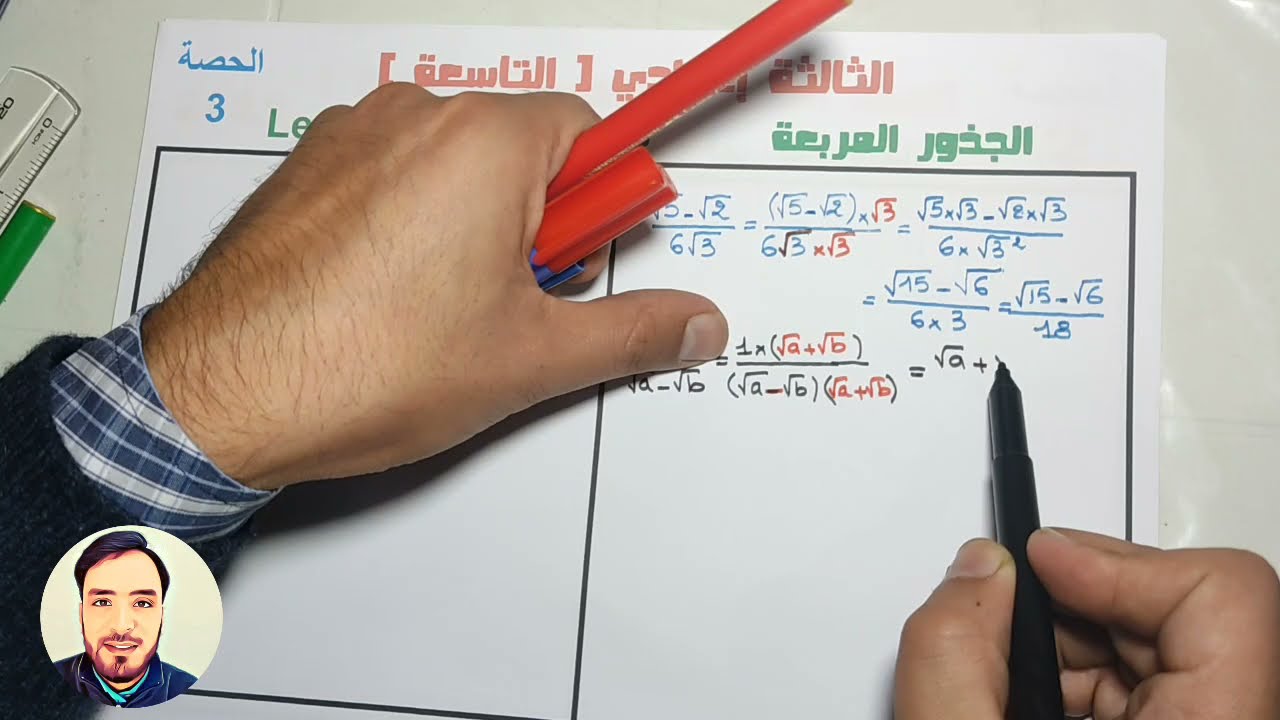 الحصة
3
الثالثة إعدادي [ التاسعة ]
الجذور المربعة
Le
√5-√2 / 6√3 = (√5-√2)×√3 / 6√3×√3 = √5×√3-√2×√3 / 6×√3²
= √15-√6 / 6×3 = √15-√6 / 18
√a-√b = 1×(√a+√b) / (√a-√b)(√a+√b) = √a+